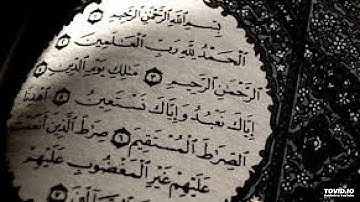 بِسْمِ ٱللَّهِ ٱلرَّحْمَٰنِ ٱلرَّحِيمِ ۝١
ٱلْحَمْدُ لِلَّهِ رَبِّ ٱلْعَٰلَمِينَ ۝٢
ٱلرَّحْمَٰنِ ٱلرَّحِيمِ ۝٣ مَٰلِكِ يَوْمِ ٱلدِّينِ ۝٤
إِيَّاكَ نَعْبُدُ وَإِيَّاكَ نَسْتَعِينُ ۝٥ ٱهْدِنَا
ٱلصِّرَٰطَ ٱلْمُسْتَقِيمَ ۝٦ صِرَٰطَ ٱلَّذِينَ أَنْعَمْتَ
عَلَيْهِمْ غَيْرِ ٱلْمَغْضُوبِ عَلَيْهِمْ
TOVID.IO